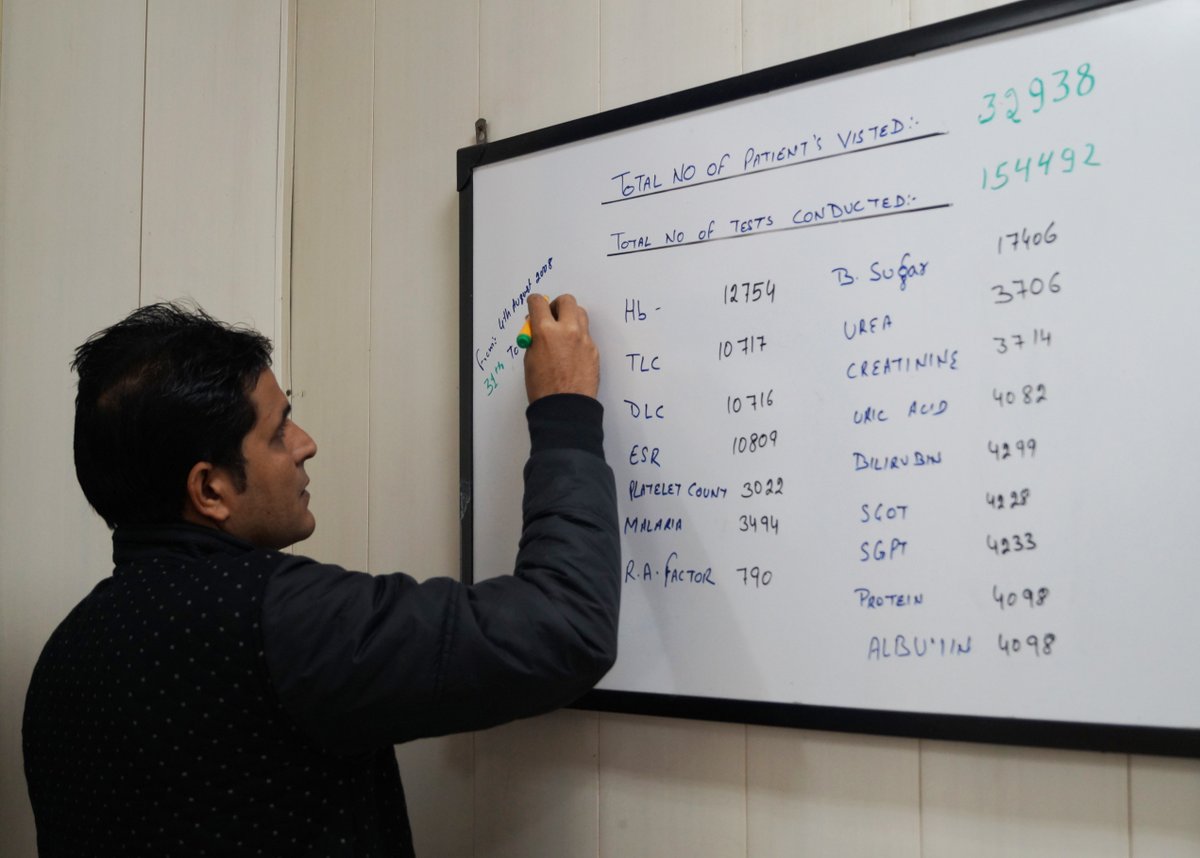 TOTAL NO OF PATIENT'S VISTED:- 32938
TOTAL NO OF TESTS CONDUCTED:- 154492
From: 4th August 2008
31th To
Hb - 12754
TLC 10717
DLC 10716
ESR 10809
PLATELET COUNT 3022
MALARIA 3494
R.A. FACTOR 790
B. Sugar 17406
UREA 3706
CREATININE 3714
URIC ACID 4082
BILIRUBIN 4299
SGOT 4228
SGPT 4233
PROTEIN 4098
ALBUMIN 4098